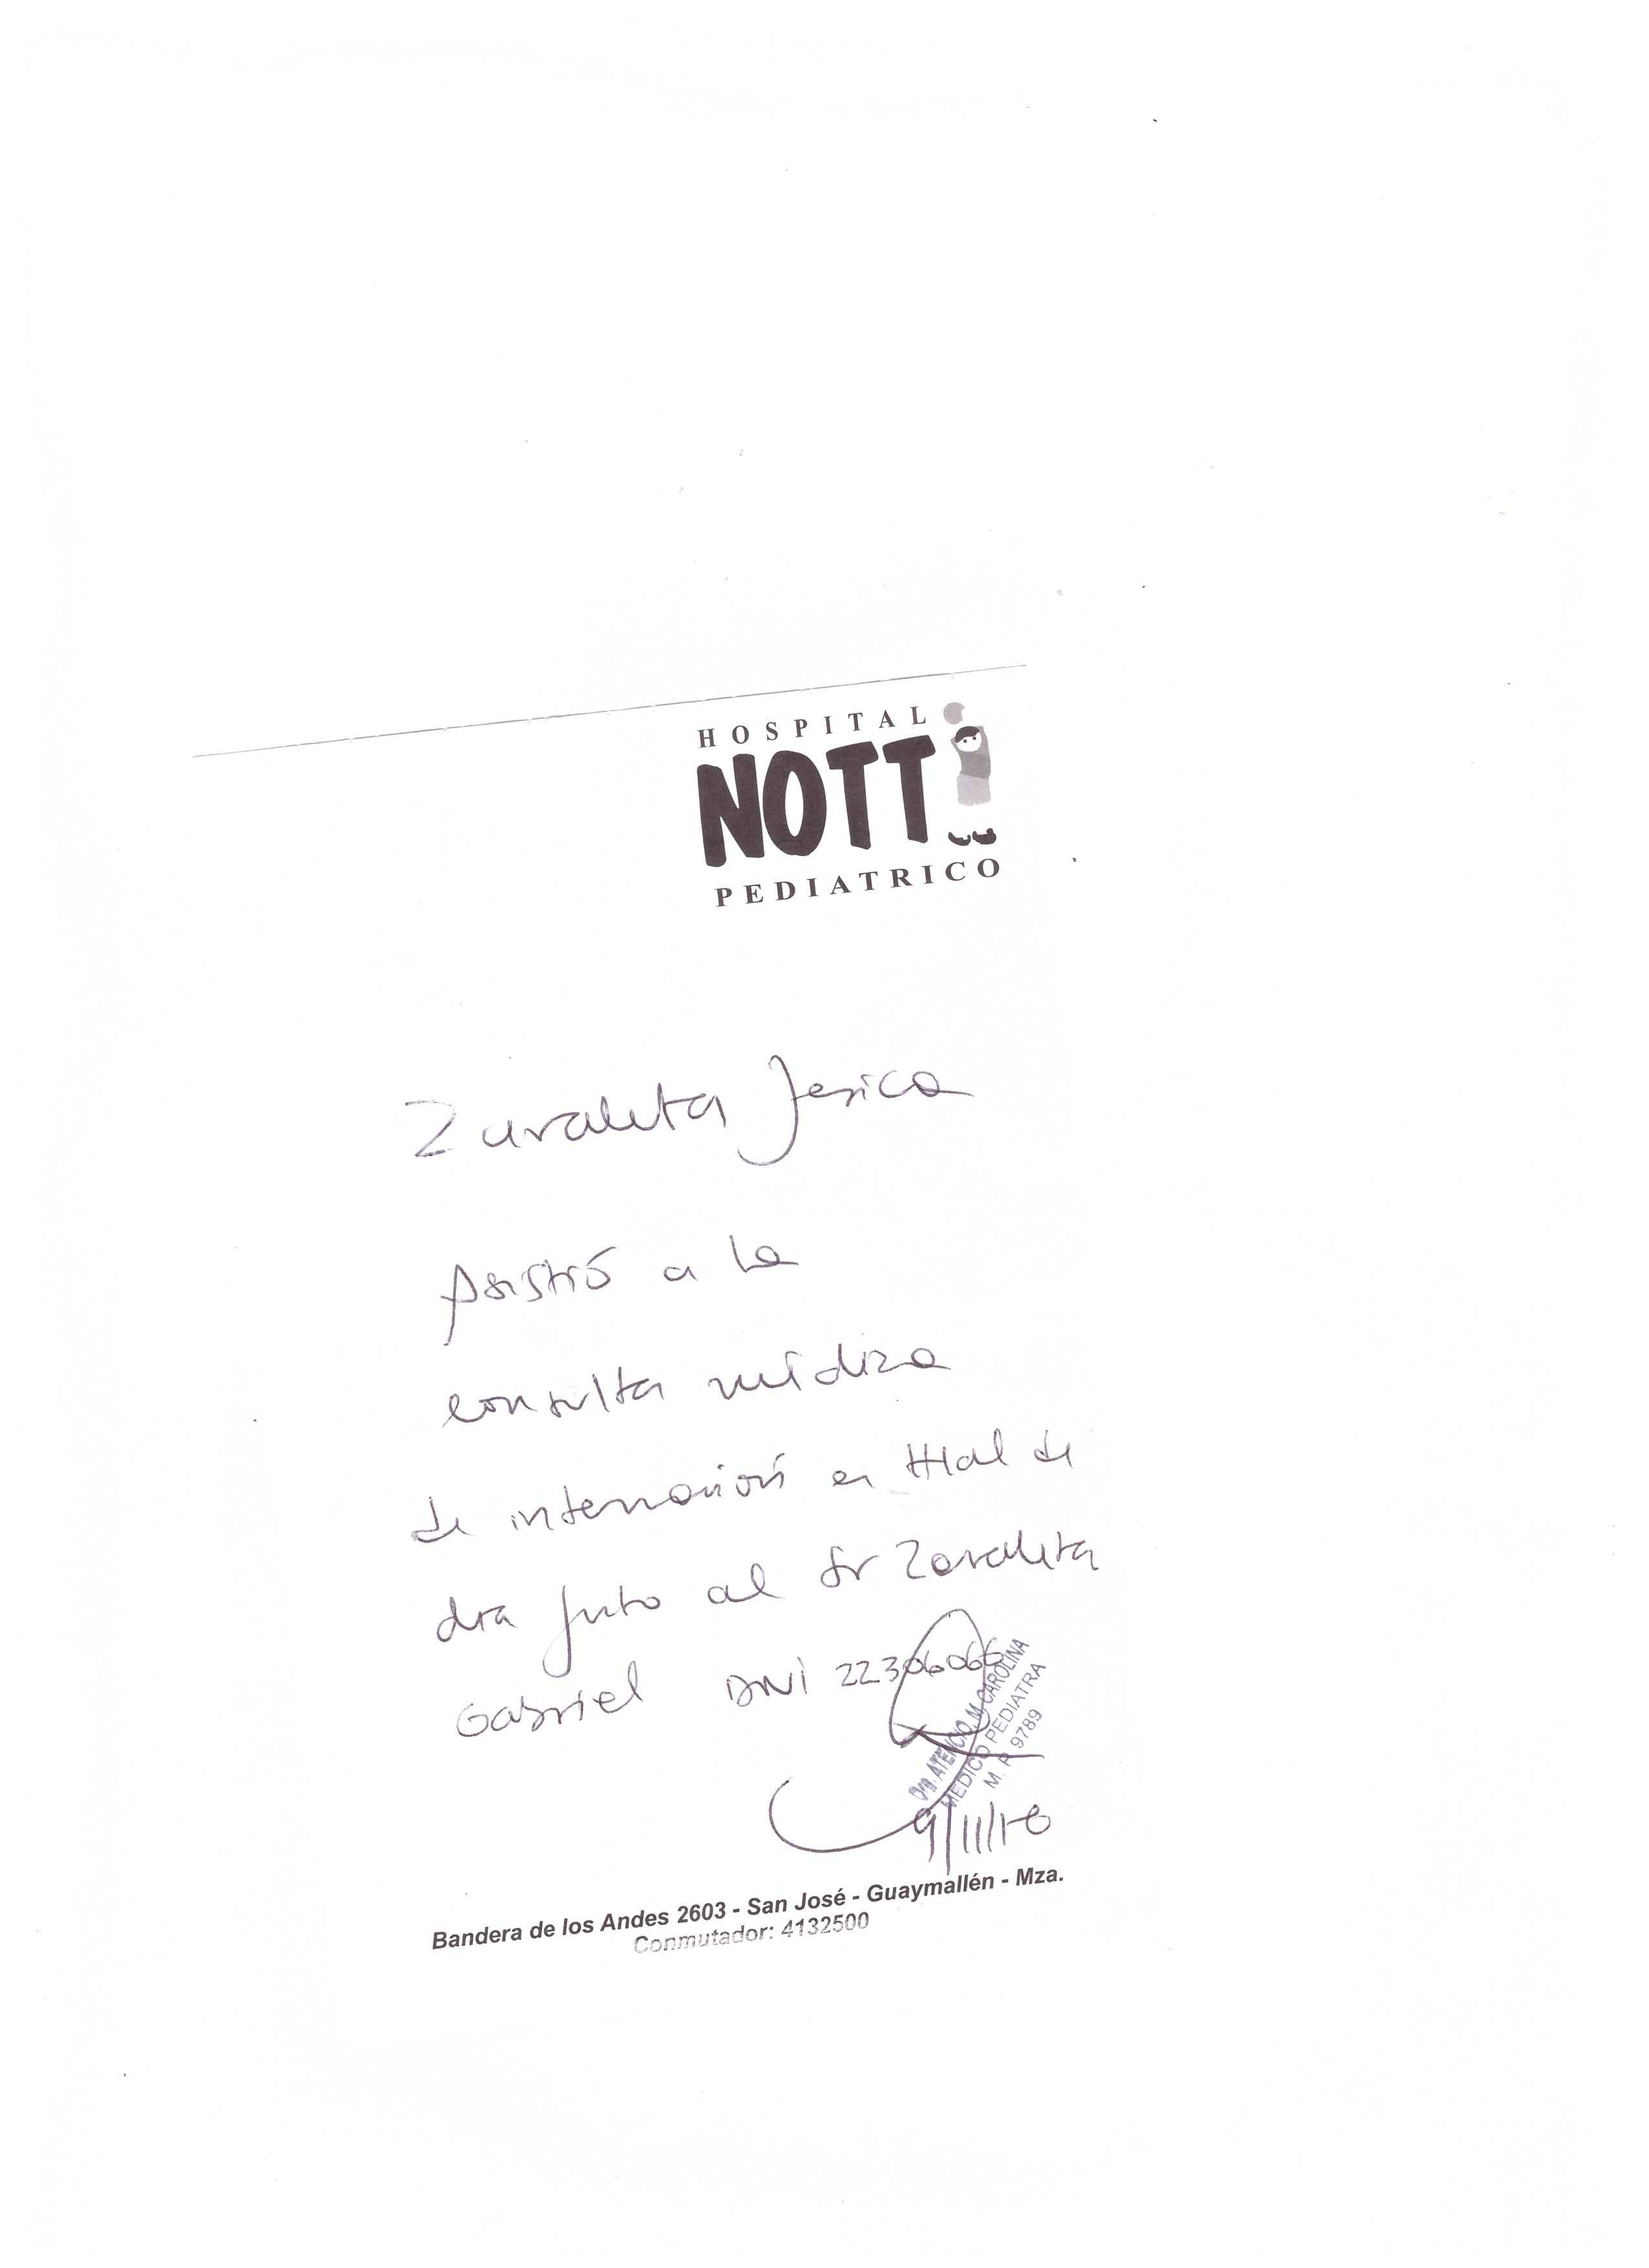 HOSPITAL
NOTTi
PEDIATRICO
Zavaleta Jesica
Asistió a la
consulta médica
de internación en Htal de
dia junto al Sr Zavaleta
Gabriel DNI 22306066
Dra. ATENCIO, M. CAROLINA
MEDICO PEDIATRA
M. P. 9789
9/11/18
Bandera de los Andes 2603 - San José - Guaymallén - Mza.
Conmutador: 4132500